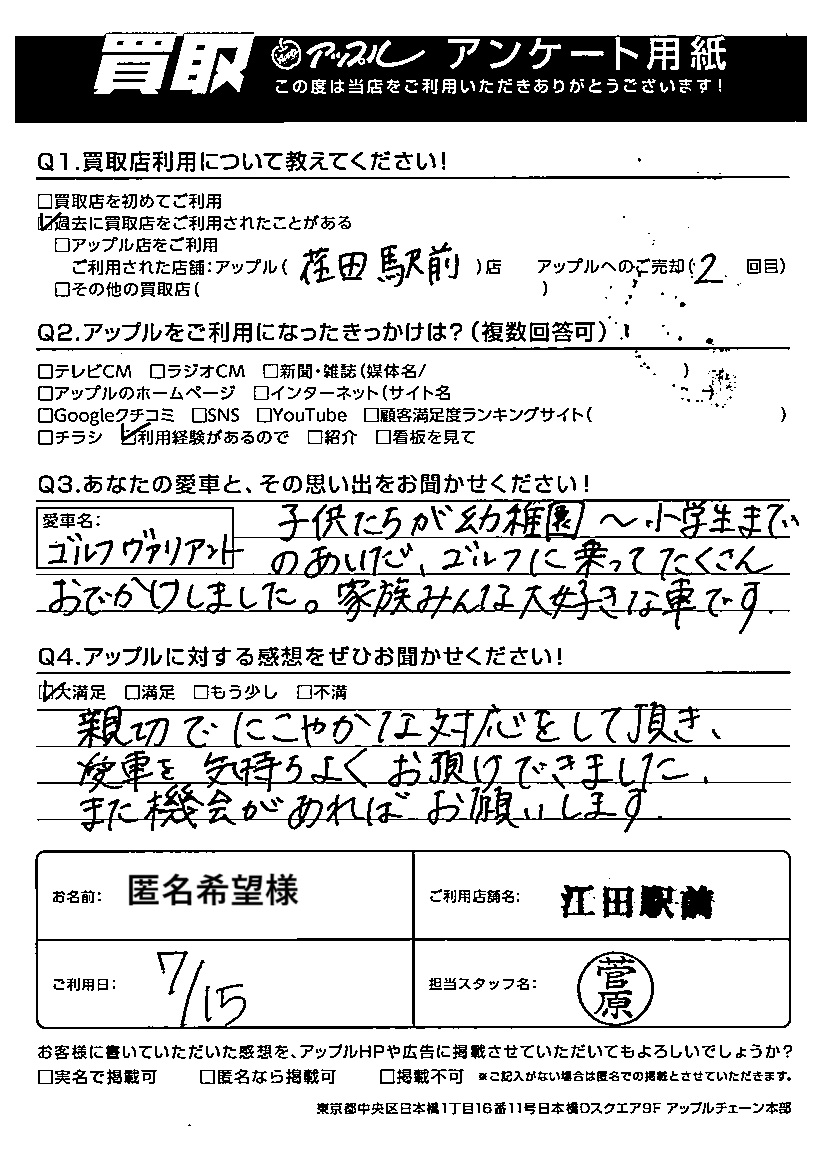 買取 アップル アンケート用紙
この度は当店をご利用いただきありがとうございます!
Q1.買取店利用について教えてください!
□買取店を初めてご利用
☑過去に買取店をご利用されたことがある
□アップル店をご利用
ご利用された店舗:アップル( 荏田駅前 )店 アップルへのご売却( 2 回目)
□その他の買取店( )
Q2.アップルをご利用になったきっかけは?(複数回答可)
□テレビCM □ラジオCM □新聞・雑誌(媒体名/ )
□アップルのホームページ □インターネット(サイト名
□Googleクチコミ □SNS □YouTube □顧客満足度ランキングサイト( )
□チラシ ☑利用経験があるので □紹介 □看板を見て
Q3.あなたの愛車と、その思い出をお聞かせください!
愛車名: 子供たちが幼稚園〜小学生まで
ゴルフヴァリアント のあいだ、ゴルフに乗ってたくさん
おでかけしました。家族みんな大好きな車です.
Q4.アップルに対する感想をぜひお聞かせください!
☑大満足 □満足 □もう少し □不満
親切でにこやかな対応をして頂き、
愛車を気持ちよくお預けできました、
また機会があればお願いします.
お名前: 匿名希望様 ご利用店舗名: 江田駅前
ご利用日: 7/15 担当スタッフ名: 菅原
お客様に書いていただいた感想を、アップルHPや広告に掲載させていただいてもよろしいでしょうか?
□実名で掲載可 □匿名なら掲載可 □掲載不可 ※ご記入がない場合は匿名での掲載とさせていただきます。
東京都中央区日本橋1丁目16番11号日本橋Dスクエア9F アップルチェーン本部